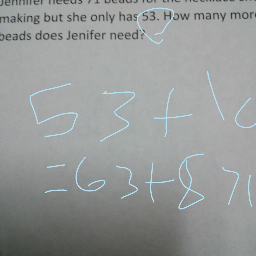 Jennifer needs 71 beads for the necklace she
making but she only has 53. How many more
beads does Jenifer need?
53+10
=63+8 71